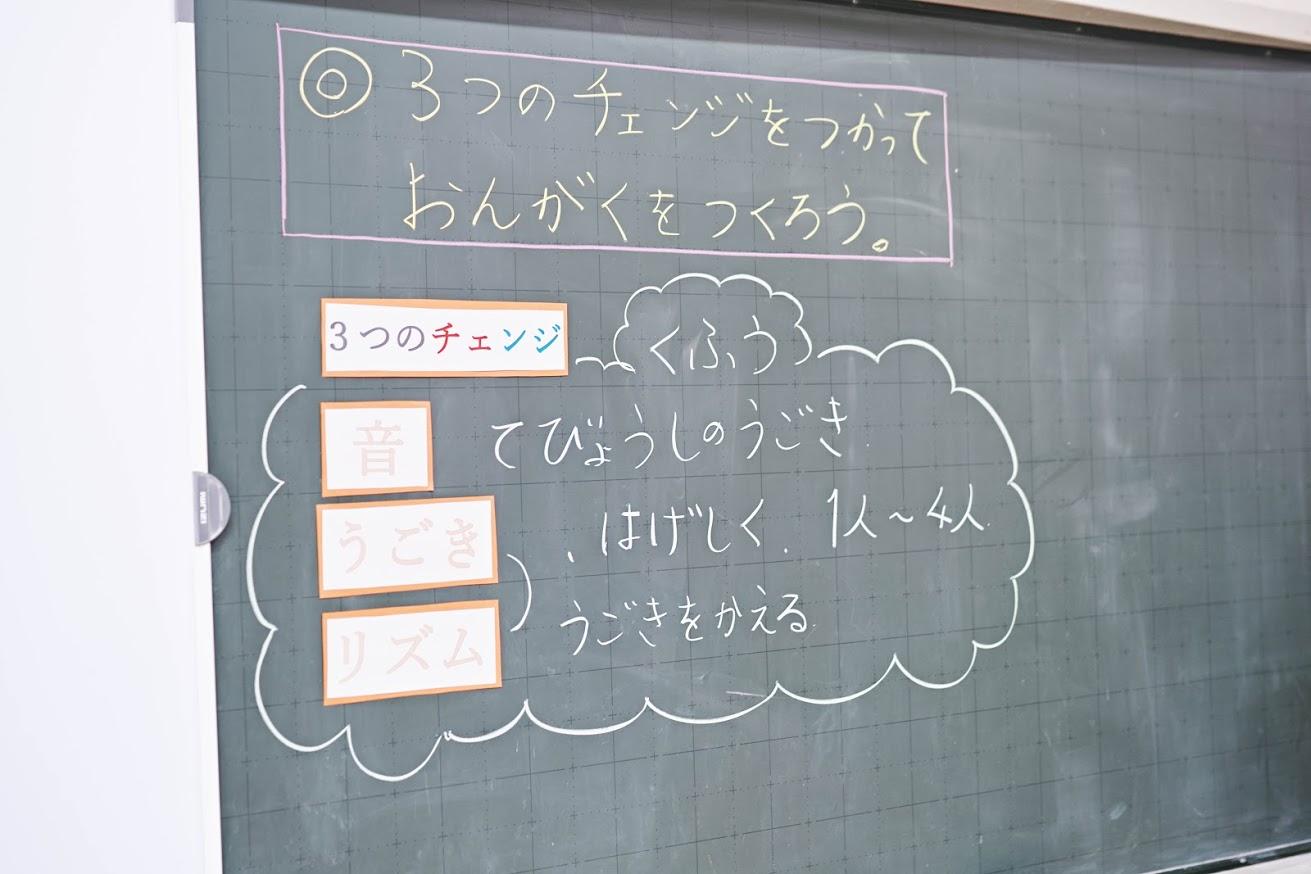 ◎3つのチェンジをつかって
おんがくをつくろう。
3つのチェンジ
くふう
音
てびょうしのうごき
うごき
、はげしく. 1人～4人
リズム
うごきをかえる
IZUMI